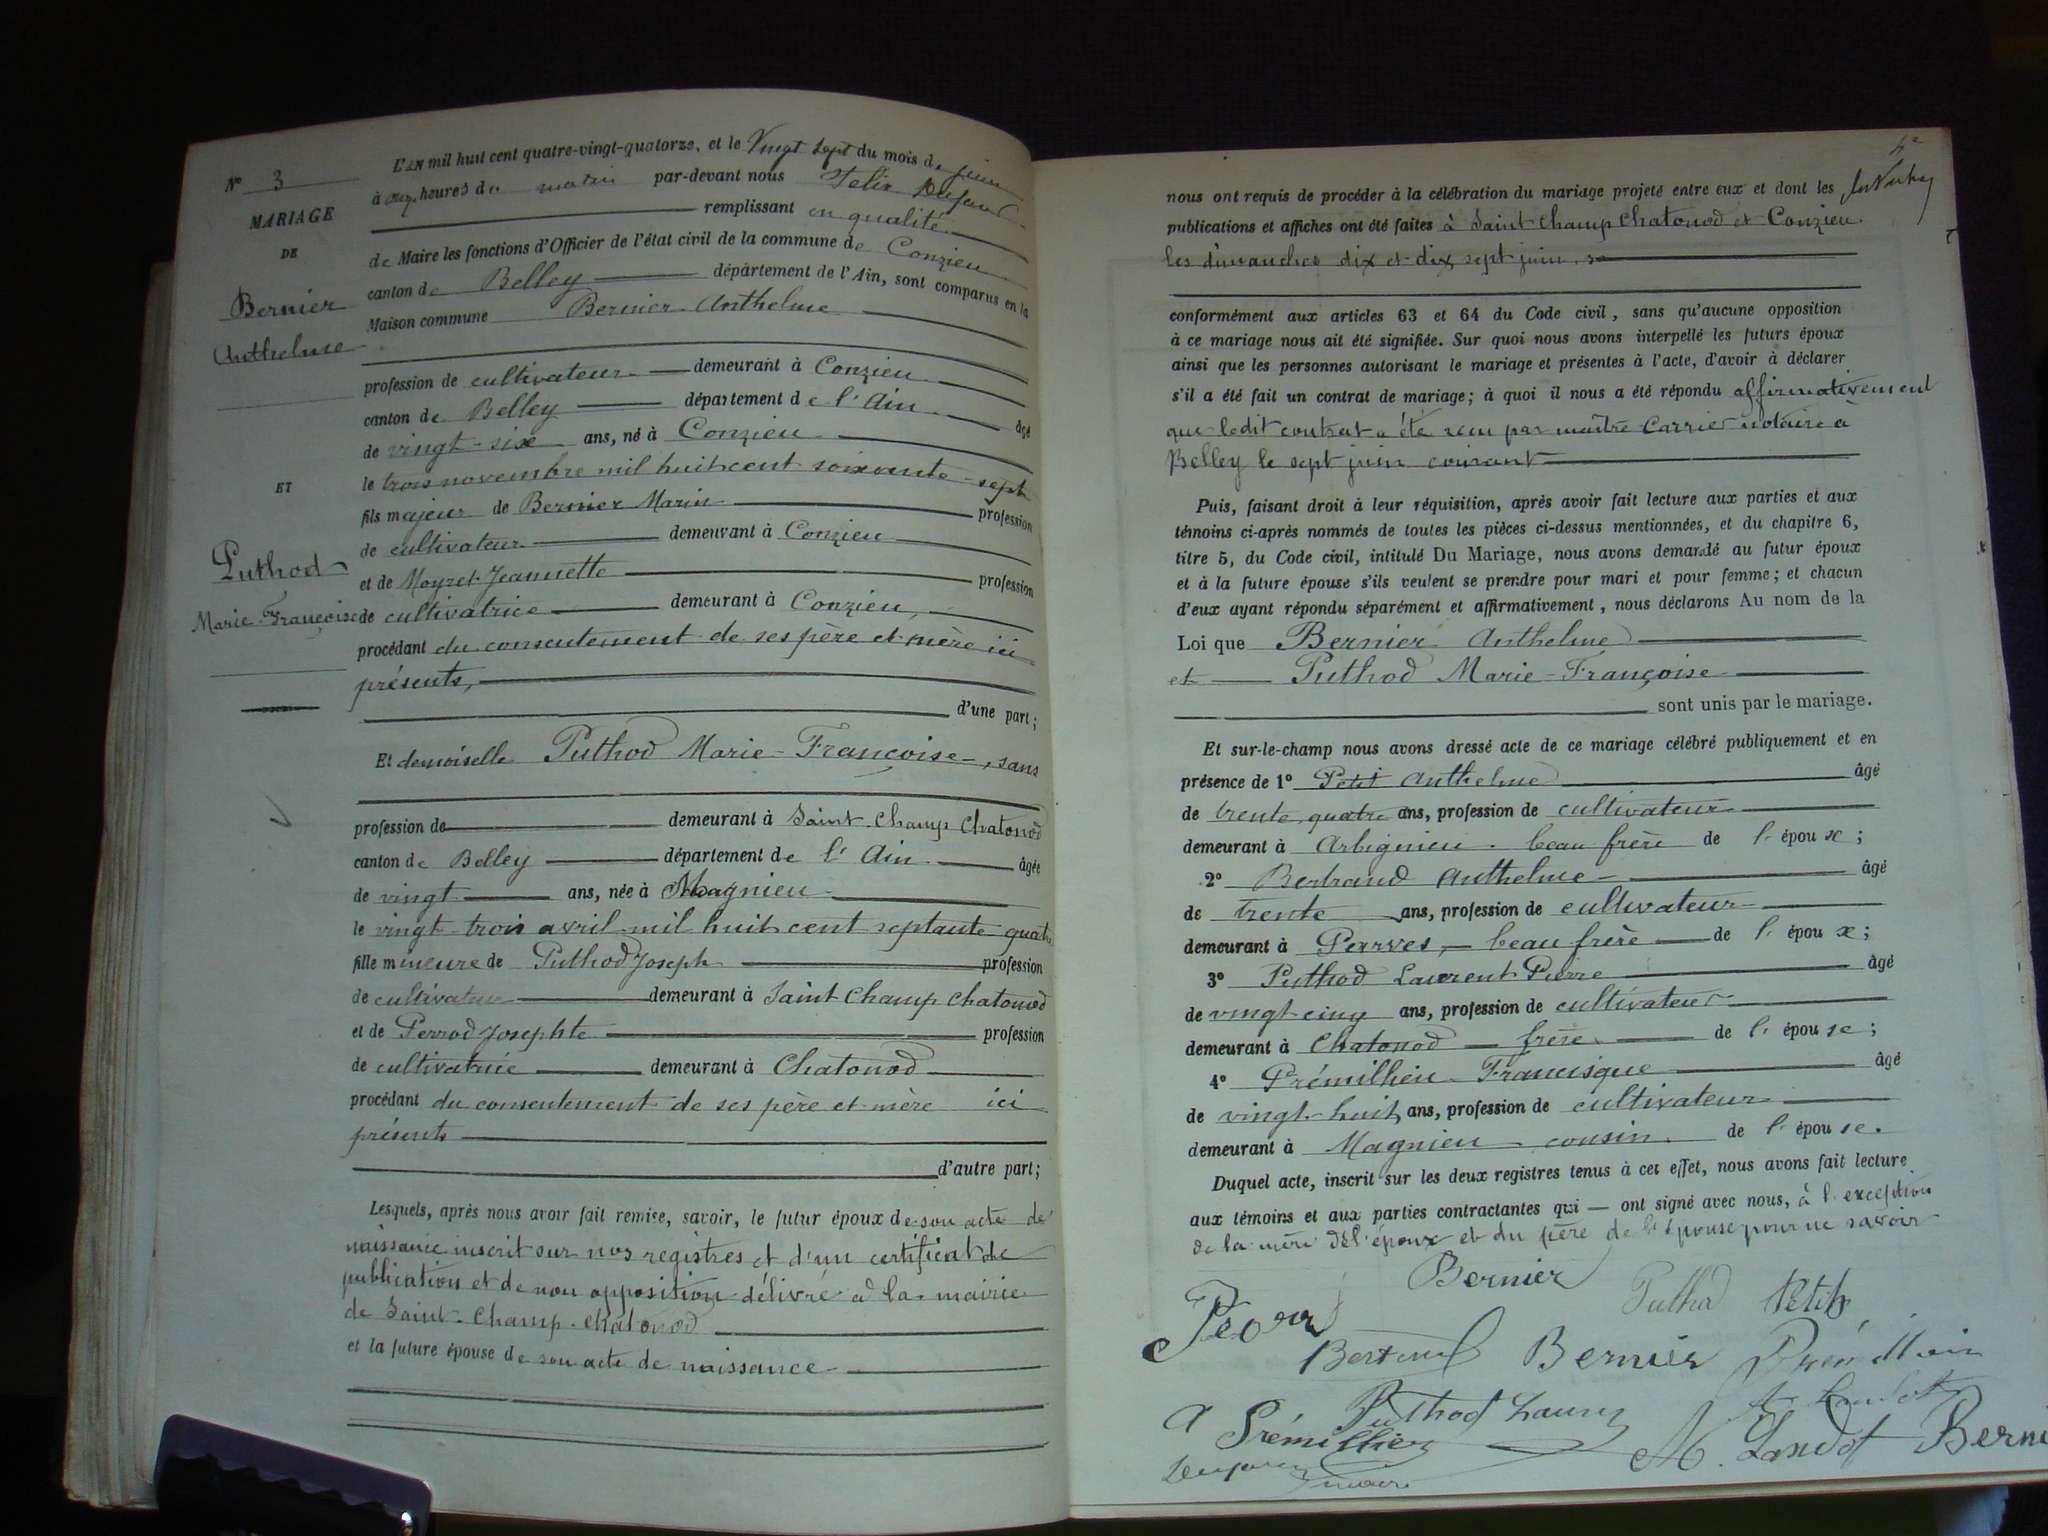 N° 3
MARIAGE
DE
Bernier
Anthelme
ET
Puthod
Marie-Françoise
L'AN mil huit cent quatre-vingt-quatorze, et le Vingt sept du mois de juin
à onze heures du matin par-devant nous Félix Dufour
remplissant en qualité
de Maire les fonctions d'Officier de l'état civil de la commune de Conzieu
canton de Belley département de l'Ain, sont comparus en la
Maison commune Bernier Anthelme
profession de cultivateur demeurant à Conzieu
canton de Belley département de l'Ain âgé
de vingt-six ans, né à Conzieu
le trois novembre mil huit cent soixante-sept
fils majeur de Bernier Marin profession
de cultivateur demeurant à Conzieu
et de Moyret Jeannette profession
de cultivatrice demeurant à Conzieu,
procédant du consentement de ses père et mère ici
présents,
d'une part;
Et demoiselle Puthod Marie-Françoise, sans
profession de demeurant à Saint-Champ Chatonod
canton de Belley département de l'Ain âgée
de vingt ans, née à Magnieu
le vingt trois avril mil huit cent septante quatre
fille mineure de Puthod Joseph profession
de cultivateur demeurant à Saint Champ Chatonod
et de Perrod Josephte profession
de cultivatrice demeurant à Chatonod
procédant du consentement de ses père et mère ici
présents
d'autre part;
Lesquels, après nous avoir fait remise, savoir, le futur époux de son acte de
naissance inscrit sur nos registres et d'un certificat de
publication et de non opposition délivré à la mairie
de Saint-Champ-Chatonod
et la future épouse de son acte de naissance
nous ont requis de procéder à la célébration du mariage projeté entre eux et dont les
publications et affiches ont été faites à Saint Champ Chatonod et Conzieu
les dimanches dix et dix sept juin
conformément aux articles 63 et 64 du Code civil, sans qu'aucune opposition
à ce mariage nous ait été signifiée. Sur quoi nous avons interpellé les futurs époux
ainsi que les personnes autorisant le mariage et présentes à l'acte, d'avoir à déclarer
s'il a été fait un contrat de mariage; à quoi il nous a été répondu affirmativement
que ledit contrat a été reçu par maître Carrier notaire à
Belley le sept juin courant
Puis, faisant droit à leur réquisition, après avoir fait lecture aux parties et aux
témoins ci-après nommés de toutes les pièces ci-dessus mentionnées, et du chapitre 6,
titre 5, du Code civil, intitulé Du Mariage, nous avons demandé au futur époux
et à la future épouse s'ils veulent se prendre pour mari et pour femme; et chacun
d'eux ayant répondu séparément et affirmativement, nous déclarons Au nom de la
Loi que Bernier Anthelme
et Puthod Marie-Françoise
sont unis par le mariage.
Et sur-le-champ nous avons dressé acte de ce mariage célébré publiquement et en
présence de 1° Petit Anthelme âgé
de trente quatre ans, profession de cultivateur
demeurant à Arbignieu beau frère de l'épouse;
2° Bertrand Anthelme âgé
de trente ans, profession de cultivateur
demeurant à beau frère de l'époux;
3° Puthod Laurent Pierre âgé
de vingt cinq ans, profession de cultivateur
demeurant à Chatonod frère de l'épouse;
4° Prémillieu Francisque âgé
de vingt-huit ans, profession de cultivateur
demeurant à Magnieu cousin de l'épouse.
Duquel acte, inscrit sur les deux registres tenus à cet effet, nous avons fait lecture
aux témoins et aux parties contractantes qui — ont signé avec nous, à l'exception
de la mère de l'époux et du père de l'épouse pour ne savoir
Bernier
Puthod Petit
Bertrand Bernier
Puthod Laurent
Prémillieu
M. Landot Berni